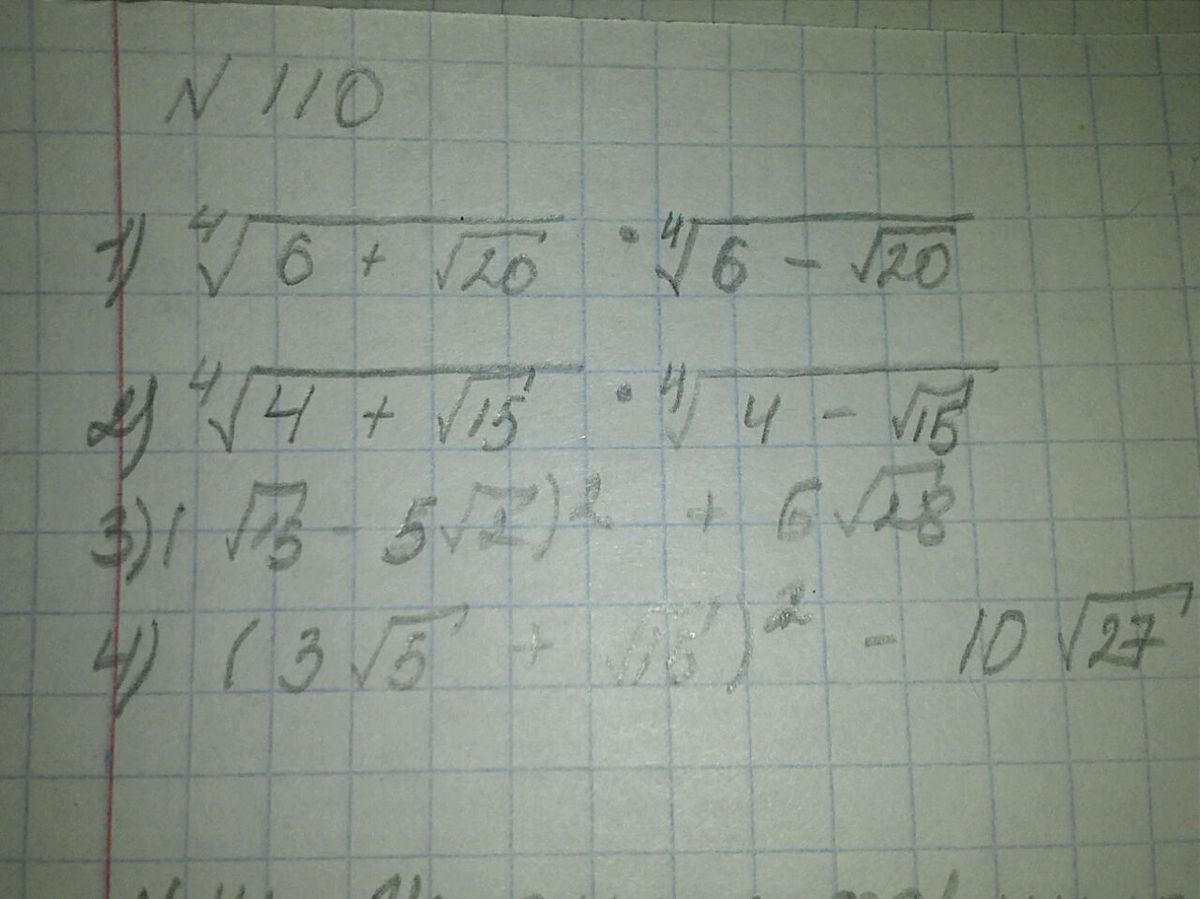 N 110
1) ⁴√(6 + √20) · ⁴√(6 - √20)
2) ⁴√(4 + √15) · ⁴√(4 - √15)
3) ( √15 - 5√2)² + 6√28
4) (3√5 + √15)² - 10√27